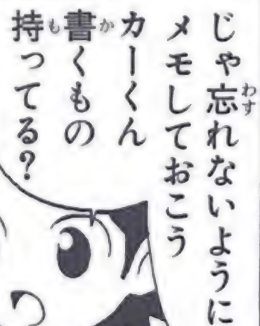 じゃ忘れないように
メモしておこう
カーくん
書くもの
持ってる？